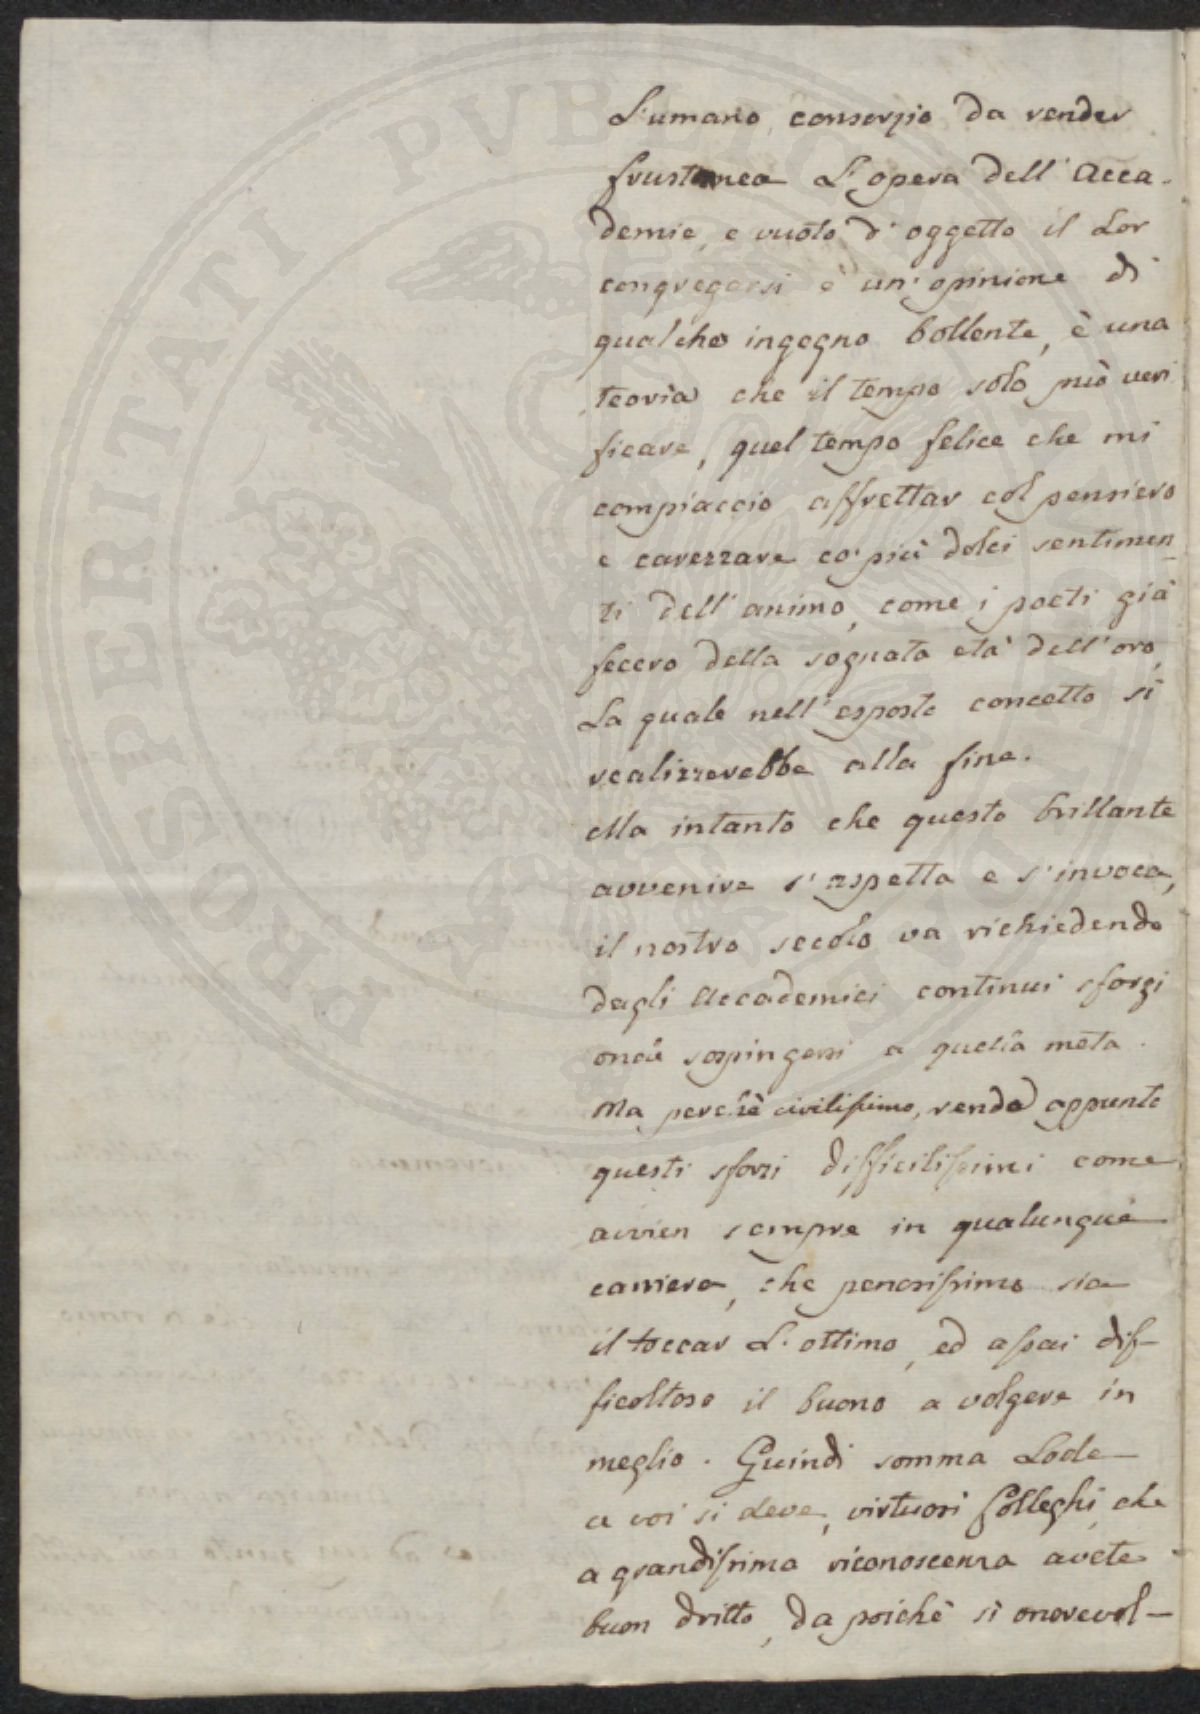 L'umano consorzio da render
frustanea L'opera dell'Acca-
demie, e vuoto d'oggetto il Lor
congregarsi è un'opinione di
qualche ingegno bollente, è una
teoria che il tempo solo può veri
ficare, quel tempo felice che mi
compiaccio affrettar col pensiero
e carezzare co' più dolci sentimen
ti dell'animo, come i poeti già
fecero della sognata età dell'oro,
La quale nell'esposto concetto si
realizzerebbe alla fine.
Ma intanto che questo brillante
avvenire s'aspetta e s'invoca,
il nostro secolo va richiedendo
dagli Accademici continui sforzi
onde sospingersi a quella meta.
Ma perchè civilissimo, rende appunto
questi sforzi difficilissimi come
avvien sempre in qualunque
carriera, che penosissimo sia
il toccar L'ottimo, ed assai dif-
ficoltoso il buono a volgere in
meglio. Quindi somma Lode
a voi si deve, virtuosi Colleghi, che
a grandissima riconoscenza avete
buon dritto, da poichè sì onorevol-
PROSPERITATI PVBLICAE AVGENDAE